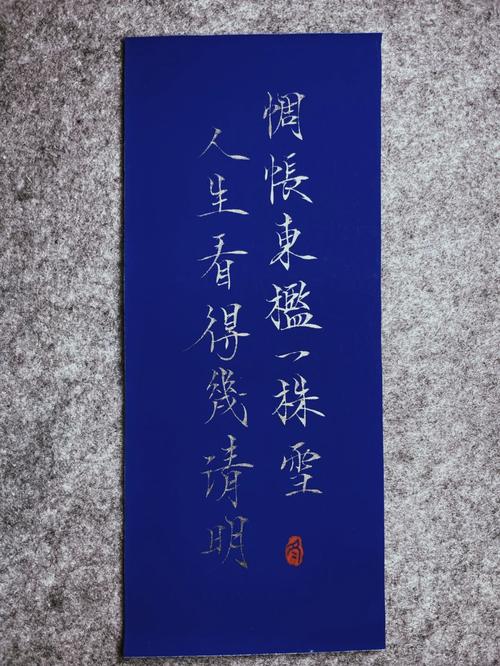 惆悵東檻一株雪
人生看得幾清明